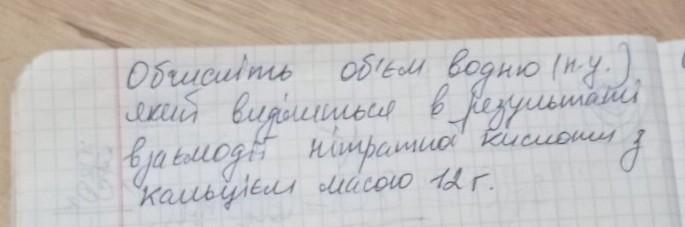 Обчисліть об'єм водню (н.у.)
який виділиться в результаті
взаємодії нітратної кислоти з
кальцієм масою 12 г.